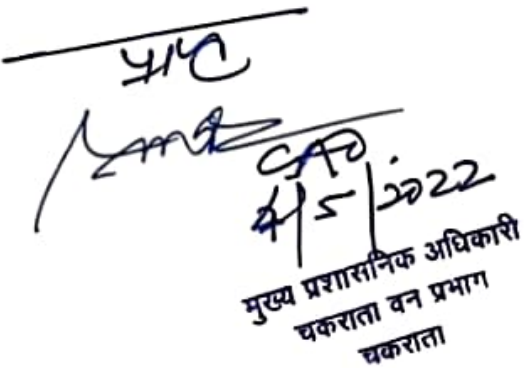 CAO
4/5/2022
मुख्य प्रशासनिक अधिकारी
चकराता वन प्रभाग
चकराता